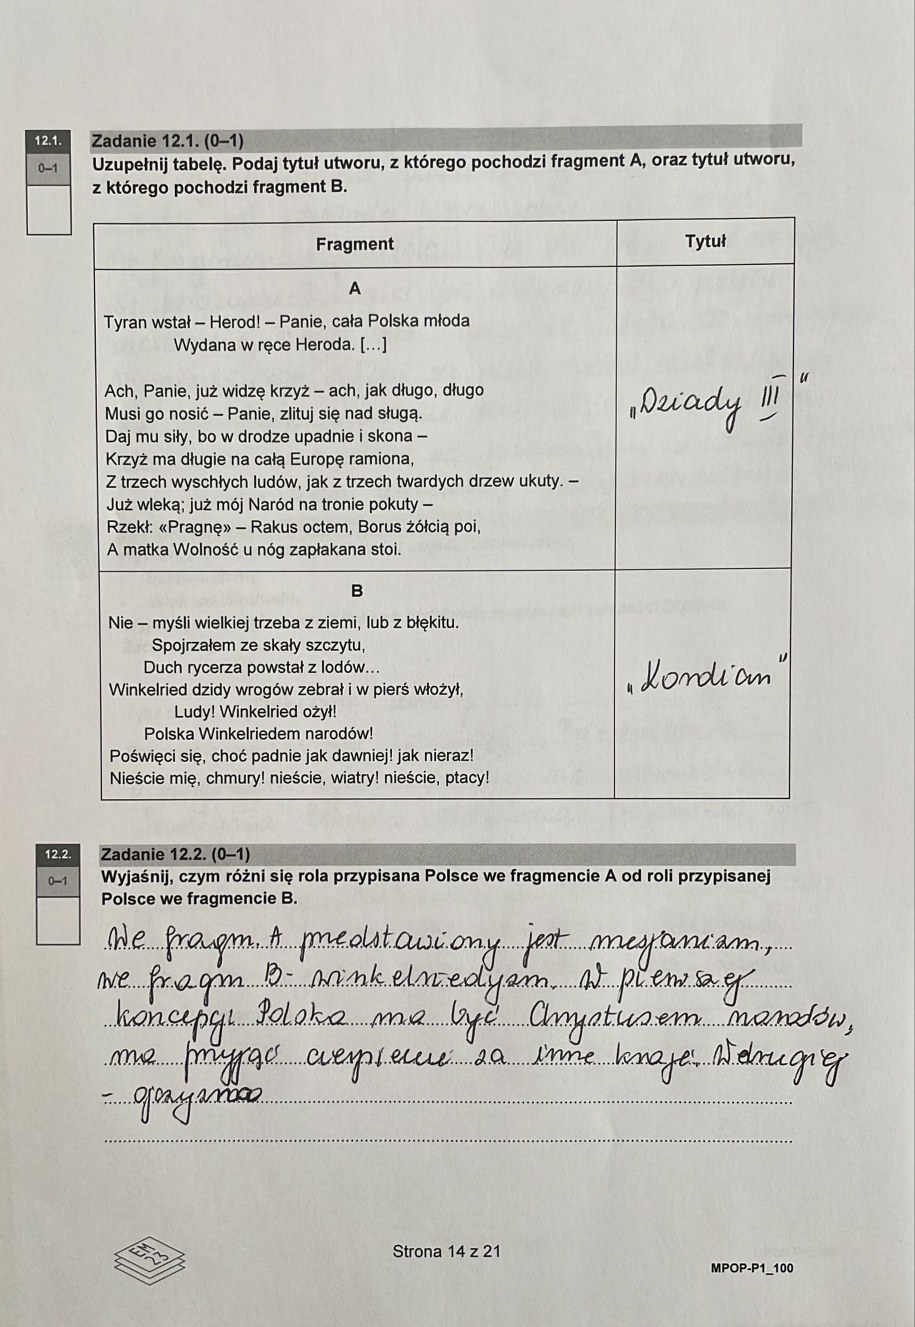 12.1.
0–1
Zadanie 12.1. (0–1)
Uzupełnij tabelę. Podaj tytuł utworu, z którego pochodzi fragment A, oraz tytuł utworu,
z którego pochodzi fragment B.
Fragment
Tytuł
A
Tyran wstał – Herod! – Panie, cała Polska młoda
Wydana w ręce Heroda. [...]
Ach, Panie, już widzę krzyż – ach, jak długo, długo
Musi go nosić – Panie, zlituj się nad sługą.
Daj mu siły, bo w drodze upadnie i skona –
Krzyż ma długie na całą Europę ramiona,
Z trzech wyschłych ludów, jak z trzech twardych drzew ukuty. –
Już wleką; już mój Naród na tronie pokuty –
Rzekł: «Pragnę» – Rakus octem, Borus żółcią poi,
A matka Wolność u nóg zapłakana stoi.
„Dziady III"
B
Nie – myśli wielkiej trzeba z ziemi, lub z błękitu.
Spojrzałem ze skały szczytu,
Duch rycerza powstał z lodów...
Winkelried dzidy wrogów zebrał i w pierś włożył,
Ludy! Winkelried ożył!
Polska Winkelriedem narodów!
Poświęci się, choć padnie jak dawniej! jak nieraz!
Nieście mię, chmury! nieście, wiatry! nieście, ptacy!
„Kordian"
12.2.
0–1
Zadanie 12.2. (0–1)
Wyjaśnij, czym różni się rola przypisana Polsce we fragmencie A od roli przypisanej
Polsce we fragmencie B.
We fragm. A przedstawiony jest mesjanizm,
we fragm B- winkelriedyzm. W pierwszej
koncepcji Polska ma być Chrystusem narodów,
ma przyjąć cierpienie za inne kraje. W drugiej
-
EM
23
Strona 14 z 21
MPOP-P1_100